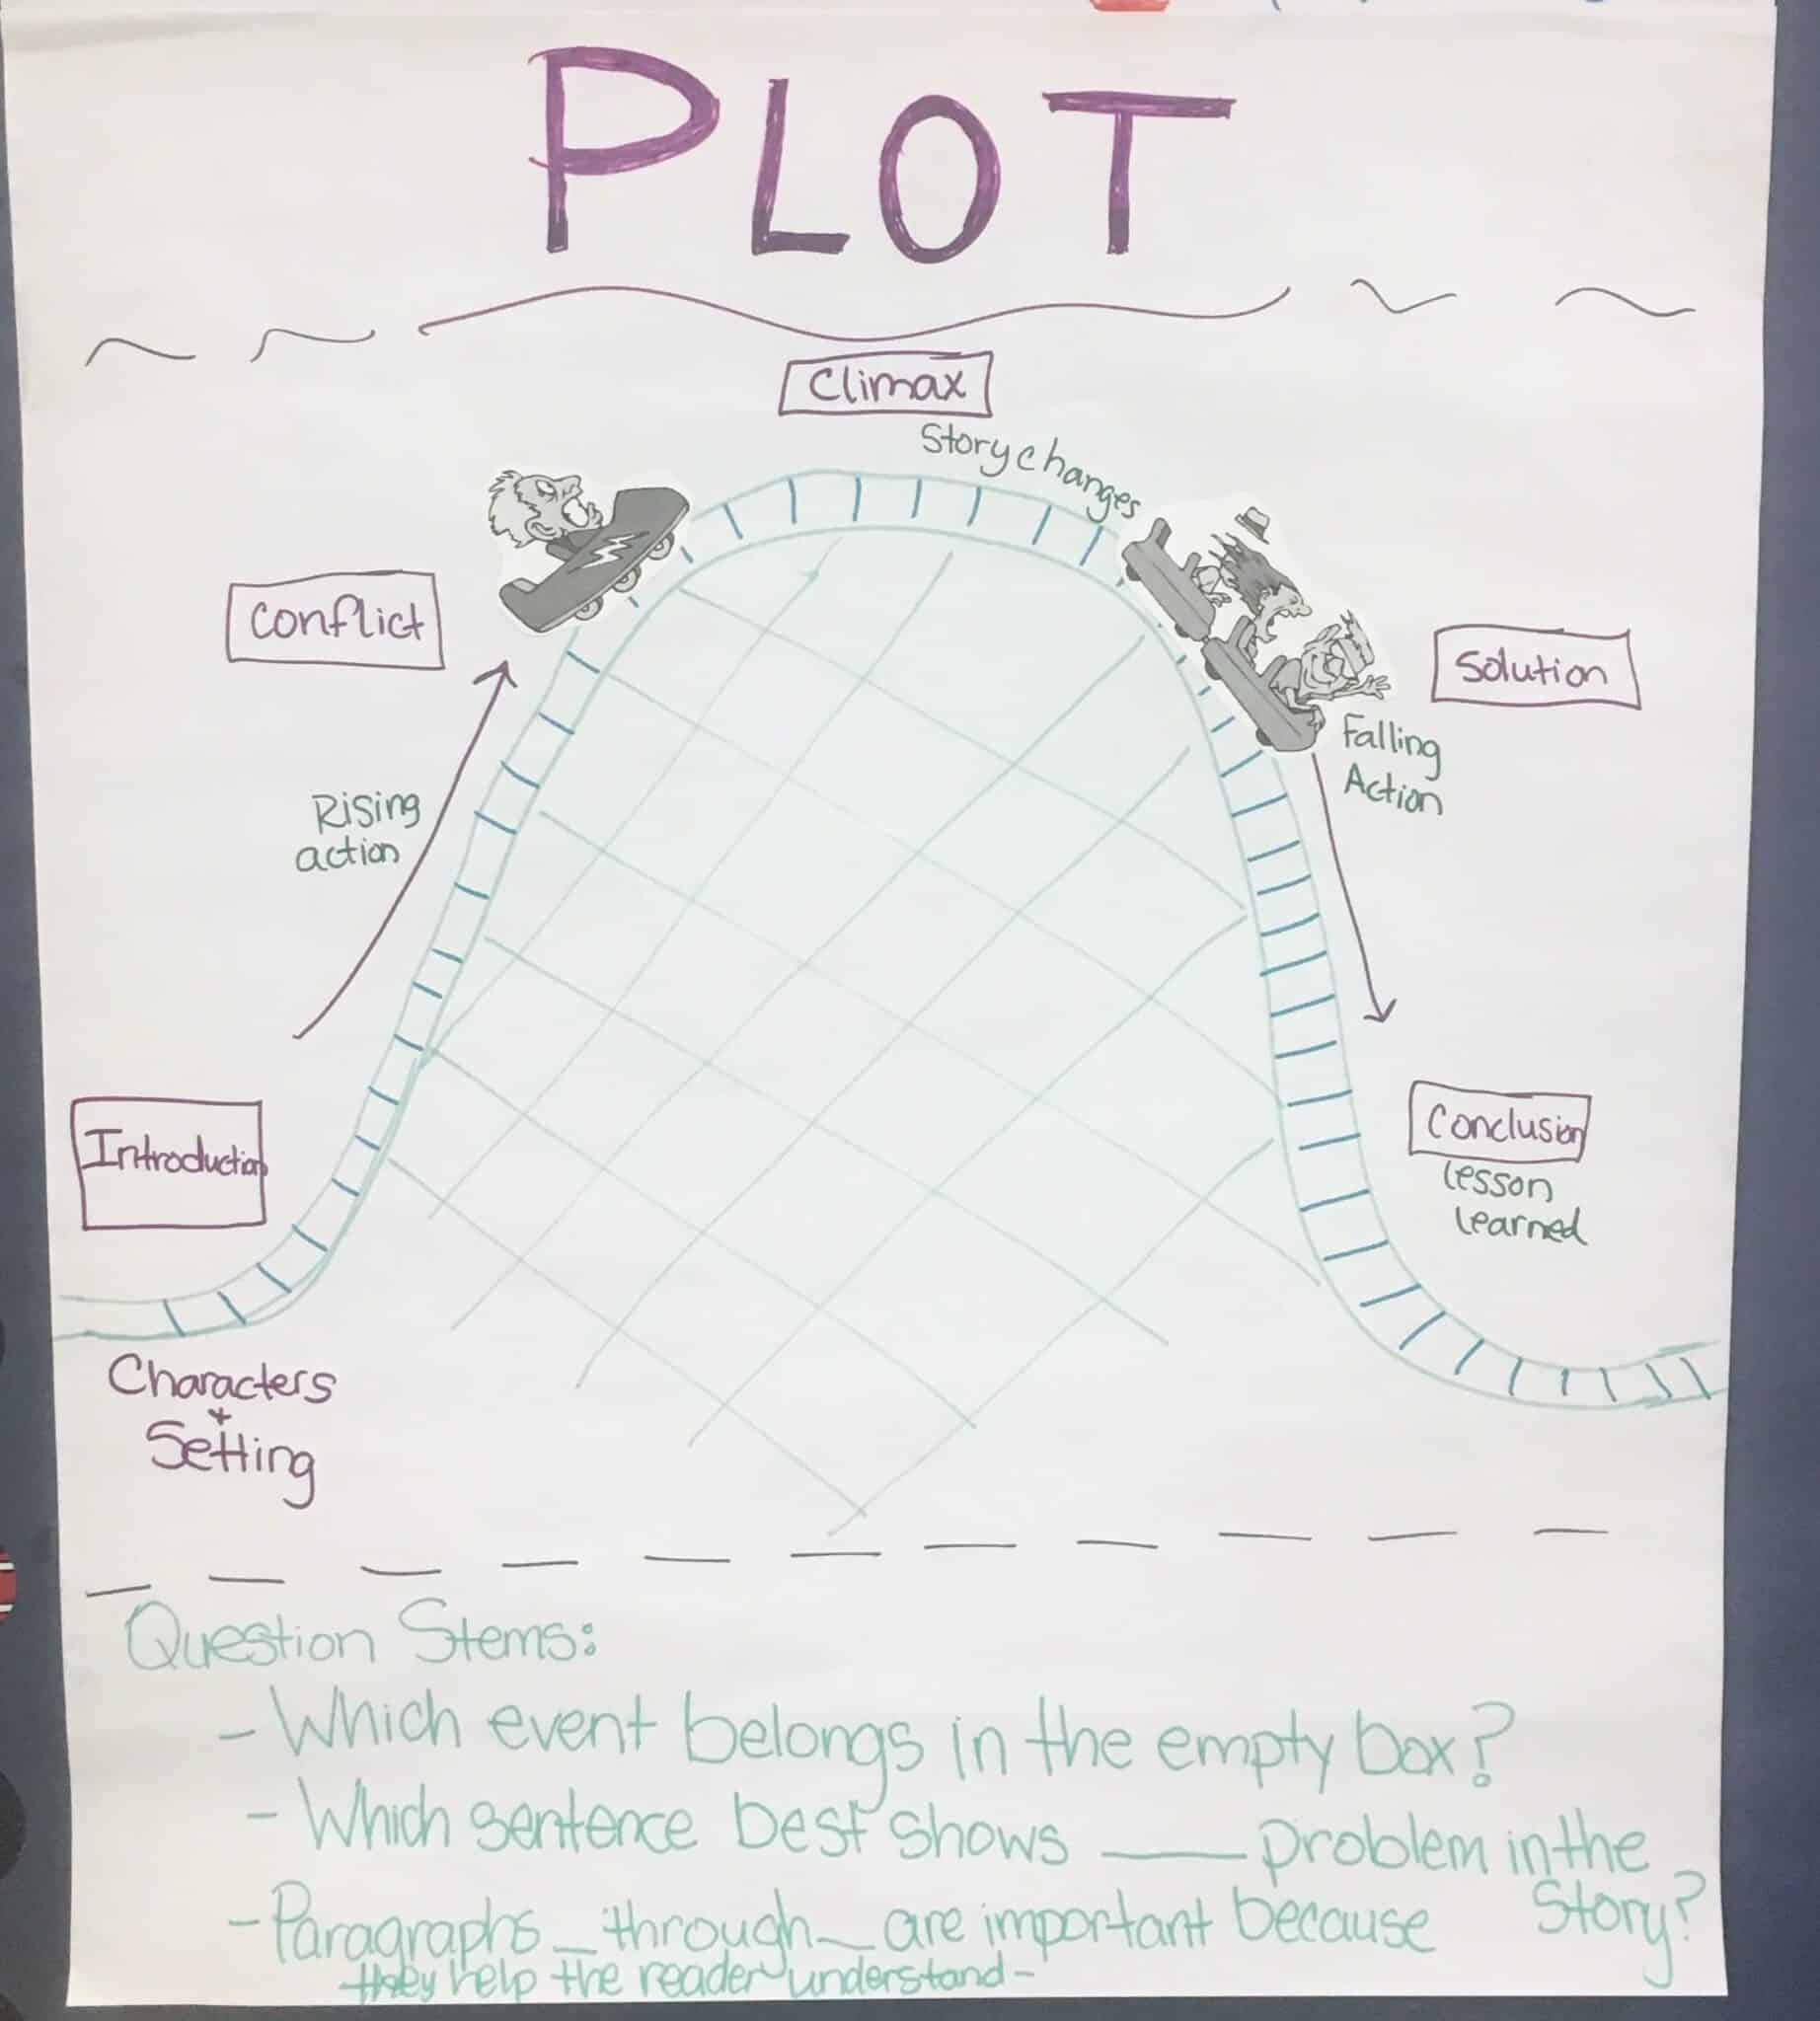 PLOT
Climax
Story changes
Conflict
Solution
Falling
Action
Rising
action
Introduction
Conclusion
lesson
learned
Characters
+
Setting
Question Stems:
- Which event belongs in the empty box?
- Which sentence best shows ___ problem in the
Story?
- Paragraphs _ through _ are important because
they help the reader understand -